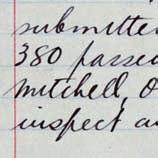 submitte
380 passed
mitchell, O
inspect a